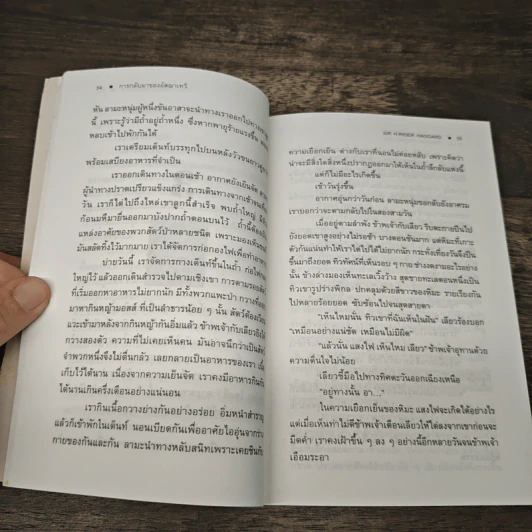 34 ● การกลับมาของอัตมาเทวี
ทัน ลามะหนุ่มผู้หนึ่งขันอาสาจะนำทางเราออกไปทาง
นี้ เพราะรู้ว่ามีถ้ำอยู่ถ้ำหนึ่ง ซึ่งหากพายุร้ายแรงขึ้น
หลบเข้าไปพักกันได้
เราเตรียมเต็นท์บรรทุกไปบนหลังวัวขน
พร้อมเสบียงอาหารที่จำเป็น
เราออกเดินทางในตอนเช้า อากาศยังเย็นจัด
ผู้นำทางปราดเปรียวแข็งแกร่ง การเดินทางจากเช้าจน
วัน เราก็ไต่ไปถึงไหล่เขาลูกนี้สำเร็จ พบถ้ำใหญ่ มี
ก้อนหิมายื่นออกมาบังปากถ้ำตอนบนไว้ ถ้ำนี้คง
แหล่งอาศัยของพวกสัตว์ป่าหลายชนิด เพราะมองเห็น
มันสลัดทิ้งไว้มากมาย เราได้จัดการก่อกองไฟเพื่อทำอาหาร
บ่ายวันนี้ เราจัดการกางเต็นท์ขึ้นในถ้ำ ก่อไฟ
ใหญ่ไว้ แล้วออกเดินสำรวจไปตามเชิงเขา การตามรอยสัตว์
ที่เริ่มออกหาอาหารไม่ยากนัก มีทั้งพวกแพะป่า กวางที่
มาหากินหญ้ามอสส์ ที่เป็นลำธารน้อย ๆ นั้น สัตว์ต้อง
แวะเข้ามาหลังจากกินหญ้ากันอิ่มแล้ว ข้าพเจ้ากับเลียวยิง
กวางสองตัว ความที่ไม่เคยเห็นคน มันอาจนึกว่าเป็นสัตว์
จำพวกหนึ่งจึงไม่ตื่นกลัว เลยกลายเป็นอาหารของเรา
เก็บไว้ได้นาน เนื่องจากความเย็นจัด เราคงมีอาหาร
ได้นานเกินครึ่งเดือนอย่างแน่นอน
เรากินเนื้อกวางย่างกันอย่างอร่อย อิ่มหนำสำราญ
แล้วก็เข้าพักในเต็นท์ นอนเบียดกันเพื่ออาศัยไออุ่นจาก
กายของกันและกัน ลามะนำทางหลับสนิทเพราะเคยชินกับ
SIR H.RIDER HAGGARD ● 35
ความเยือกเย็น ต่างกับเราที่นอนไม่ค่อยหลับ เพราะคิดว่า
น่าจะมีสิ่งใดสิ่งหนึ่งปรากฏออกมาให้เห็นในถ้ำลึกลับแห่งนี้
แต่ก็ไม่มีอะไรเกิดขึ้น
เช้าวันรุ่งขึ้น
อากาศอุ่นกว่าวันก่อน ลามะหนุ่มรอคลับยังอาราม
เราบอกว่าจะตามกลับไปในสองสามวัน
เมื่ออยู่ตามลำพัง ข้าพเจ้ากับเลียว รีบตะกายปีนไป
ยังยอดเขาสูงอย่างไม่รอช้า บางตอนชันมาก แต่หิมะที่เกาะ
ตัวกันแน่นทำให้เราไต่ไปได้ไม่ยากนัก กระทั่งเที่ยงวันจึงปีน
ขึ้นมาถึงยอด ทิวทัศน์ที่เห็นรอบ ๆ กาย ช่างงดงามอะไรอย่าง
นั้น ข้างล่างมองเห็นทะเลเวิ้งว้าง สุดชายทะเลตอนหนึ่งเป็น
ทิวเขารูปร่างพิกล ปกคลุมด้วยสีขาวของหิมะ รายเรียงกัน
ไปหลายร้อยยอด ซับซ้อนไปจนสุดสายตา
“เห็นไหมนั่น ทิวเขาที่ฉันเห็นในฝัน” เลียวร้องบอก
“เหมือนอย่างแน่ชัด เหมือนไม่มีผิด”
“แล้วนั่น แสงไฟ เห็นไหม เลียว” ข้าพเจ้าอุทานด้วย
ความตื่นใจไม่น้อย
เลียวชี้มือไปทางทิศตะวันออกเฉียงเหนือ
“อยู่ทางนั้น อา...”
ในความเยือกเย็นของหิมะ แสงไฟจะเกิดได้อย่างไร
แต่เมื่อเห็นท่าไม่ดีข้าพเจ้าเตือนเลียวให้ไต่ลงจากเขาก่อนจะ
มืดค่ำ เราคงเฝ้าขึ้น ๆ ลง ๆ อย่างนี้อีกหลายวันจนข้าพเจ้า
เอือมระอา